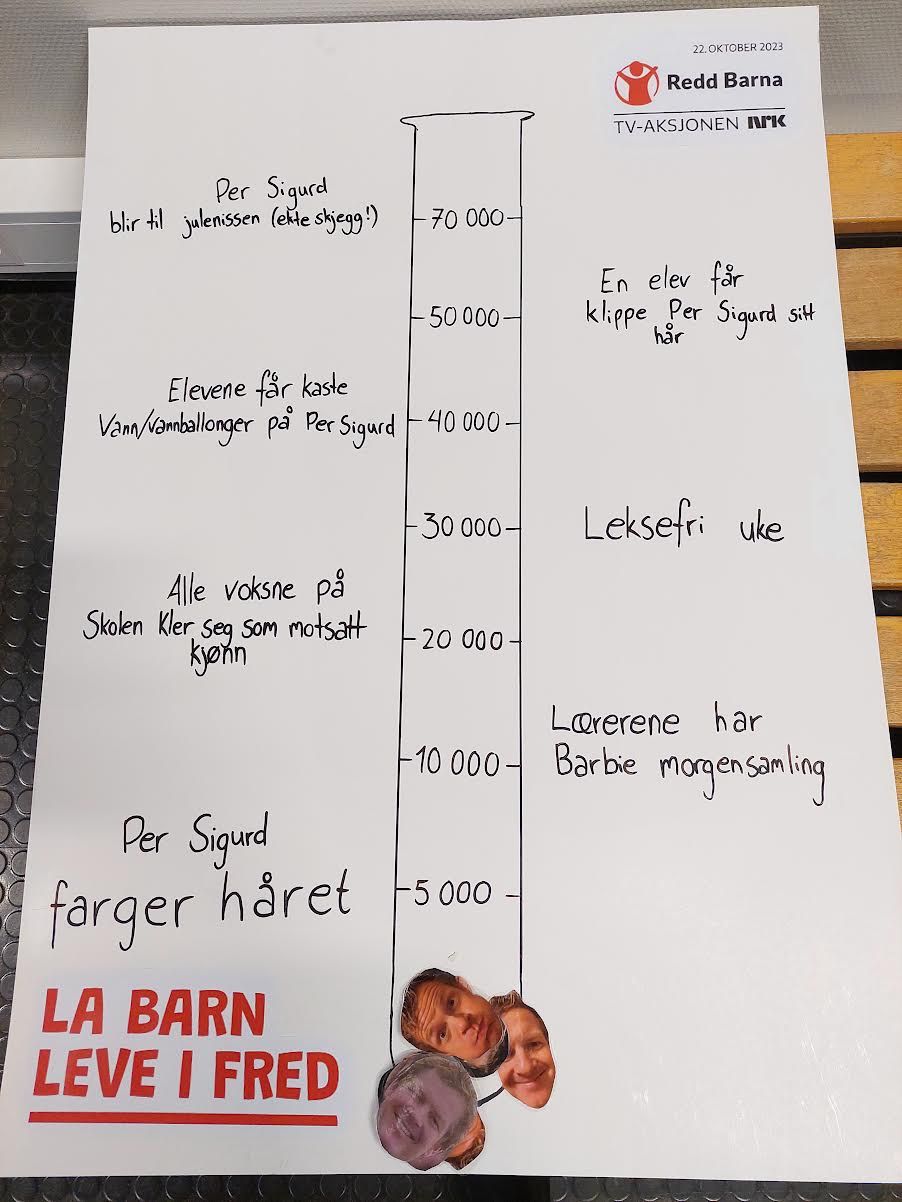 22. OKTOBER 2023
Redd Barna
TV-AKSJONEN nrk
Per Sigurd
blir til julenissen (ekte skjegg!)
70 000
En elev får
klippe Per Sigurd sitt
hår
50 000
Elevene får kaste
Vann/vannballonger på Per Sigurd
40 000
30 000
Leksefri uke
Alle voksne på
Skolen Kler seg som motsatt
kjønn
20 000
Lærerene har
Barbie morgensamling
10 000
Per Sigurd
farger håret
5 000
LA BARN
LEVE I FRED